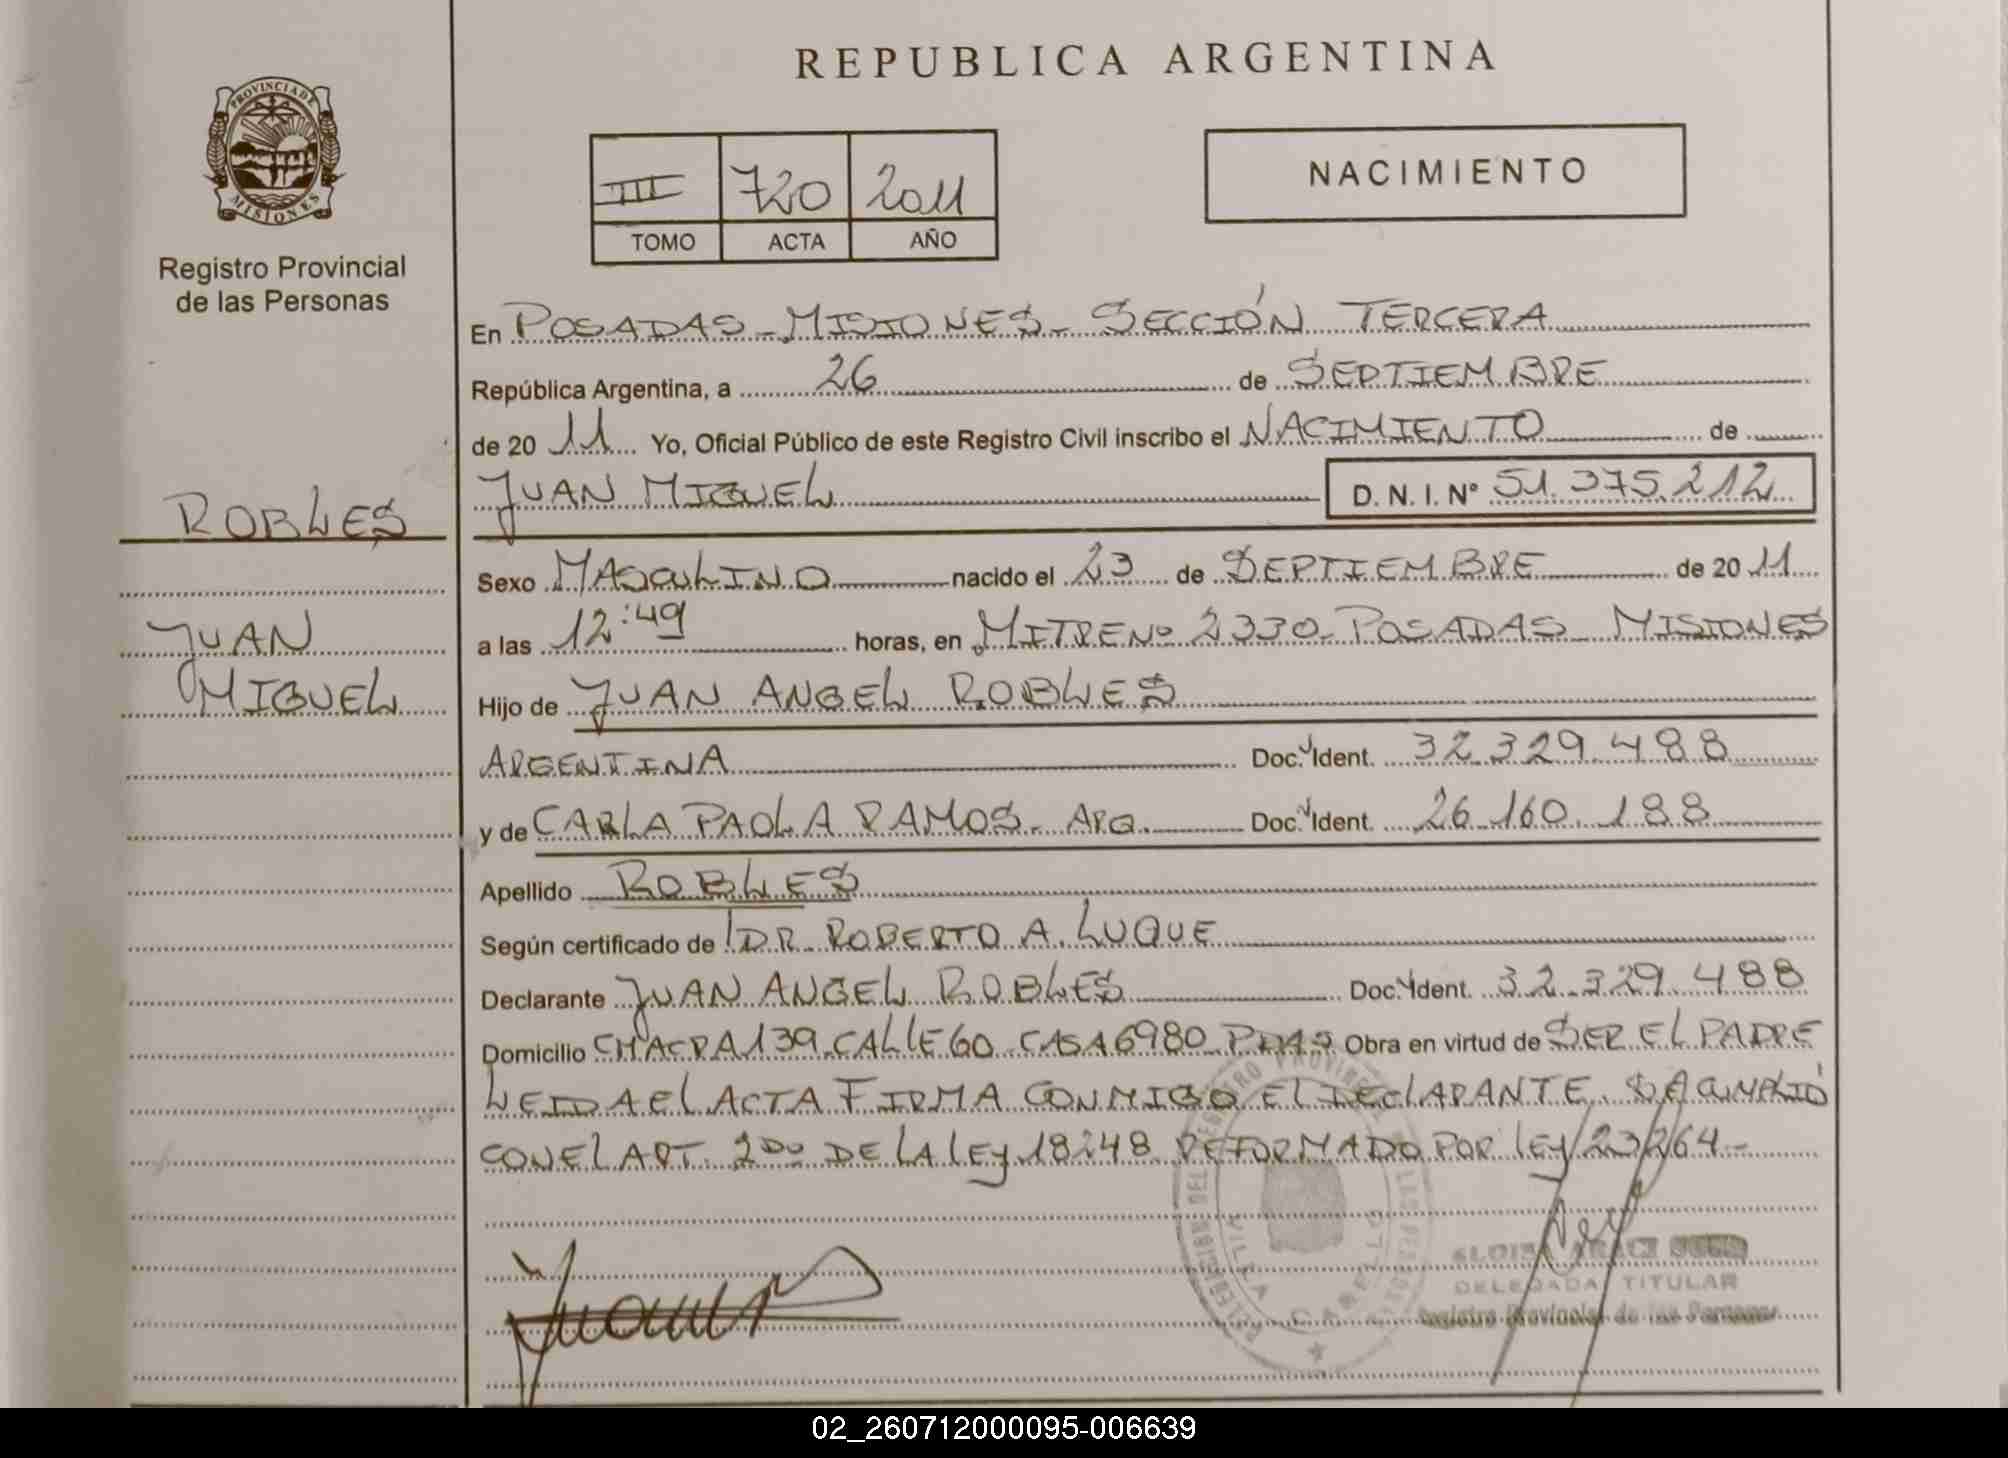 REPUBLICA ARGENTINA
PROVINCIA DE
MISIONES
Registro Provincial
de las Personas
III 720 2011
TOMO ACTA AÑO
NACIMIENTO
En POSADAS - MISIONES - SECCIÓN TERCERA
República Argentina, a 26 de SEPTIEMBRE
de 20 11 Yo, Oficial Público de este Registro Civil inscribo el NACIMIENTO de
JUAN MIGUEL D. N. I. Nº 51.375.212
ROBLES
JUAN
MIGUEL
Sexo MASCULINO nacido el 23 de SEPTIEMBRE de 20 11
a las 12:49 horas, en MITRE Nº 2330 - POSADAS - MISIONES
Hijo de JUAN ANGEL ROBLES
ARGENTINA Doc. Ident. 32.329.488
y de CARLA PAOLA RAMOS - ARG. Doc. Ident. 26.160.188
Apellido ROBLES
Según certificado de DR. ROBERTO A. LUQUE
Declarante JUAN ANGEL ROBLES Doc. Ident. 32.329.488
Domicilio CHACRA 139 - CALLE 60 - CASA 6980 - PDAS Obra en virtud de SER EL PADRE
LEIDA EL ACTA FIRMA CONMIGO EL DECLARANTE. SE CUMPLIÓ
CON EL ART. 2do DE LA LEY 18248 REFORMADO POR LEY 23264 -
DELEGACION DEL REGISTRO PROVINCIAL DE LAS PERSONAS
VILLA CABELLO
DELEGADA TITULAR
Registro Provincial de las Personas
02_260712000095-006639